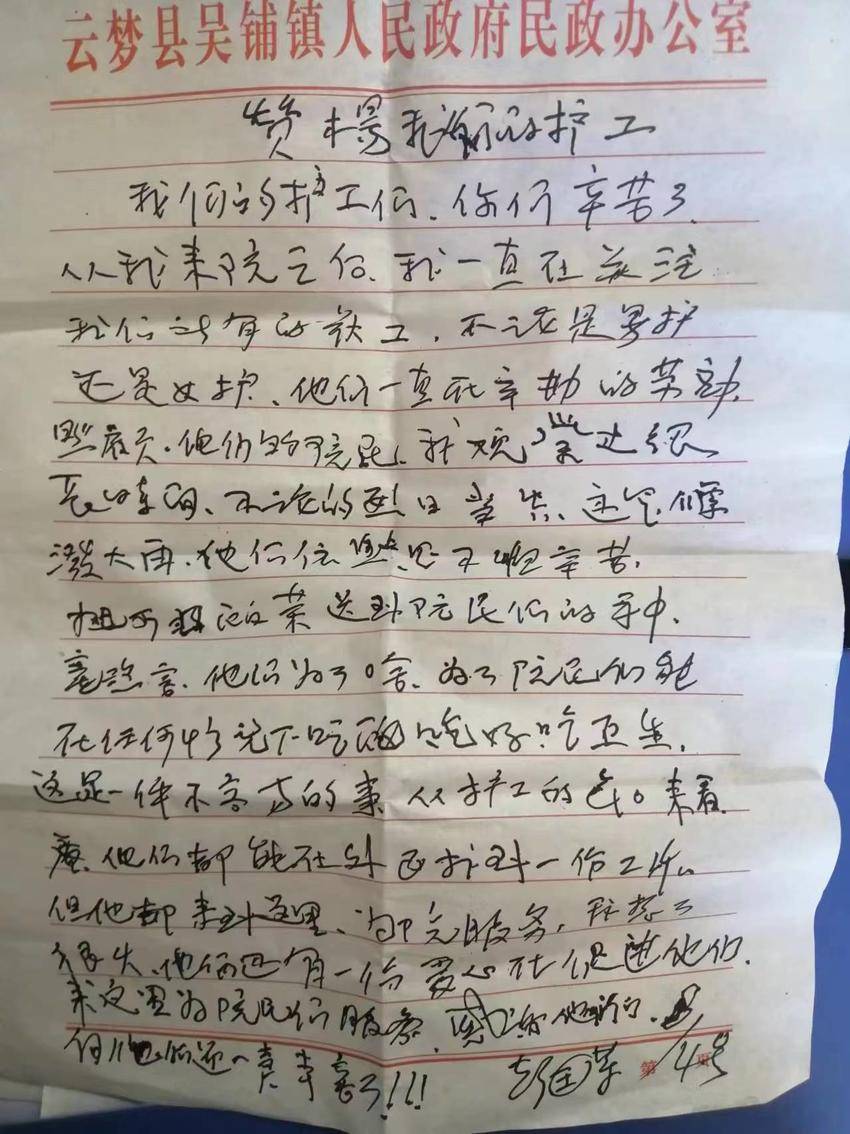 云梦县吴铺镇人民政府民政办公室
赞扬我们的护工
我们的护工们、你们辛苦了、
从我来院之后、我一直在关注
我们所有的护工，不论是男护
还是女护、他们一直在辛勤的劳动，
他们的院民、我
长时间、不论的烈日当头、还是倾
泼大雨、他们依然是不怕辛苦，
把可的菜送到院民们的手中，
他们为了啥、为了院民们能
在任何情况下吃饱吃好吃卫生，
这是一件不容易的事、从护工的来看、
他们都能在外面找到一份工作。
但他都来到这里、为院服务，
他们还有一份爱心在促进他们、
来这里为院民们服务，感谢他们、
你们辛苦了!!!
第 页